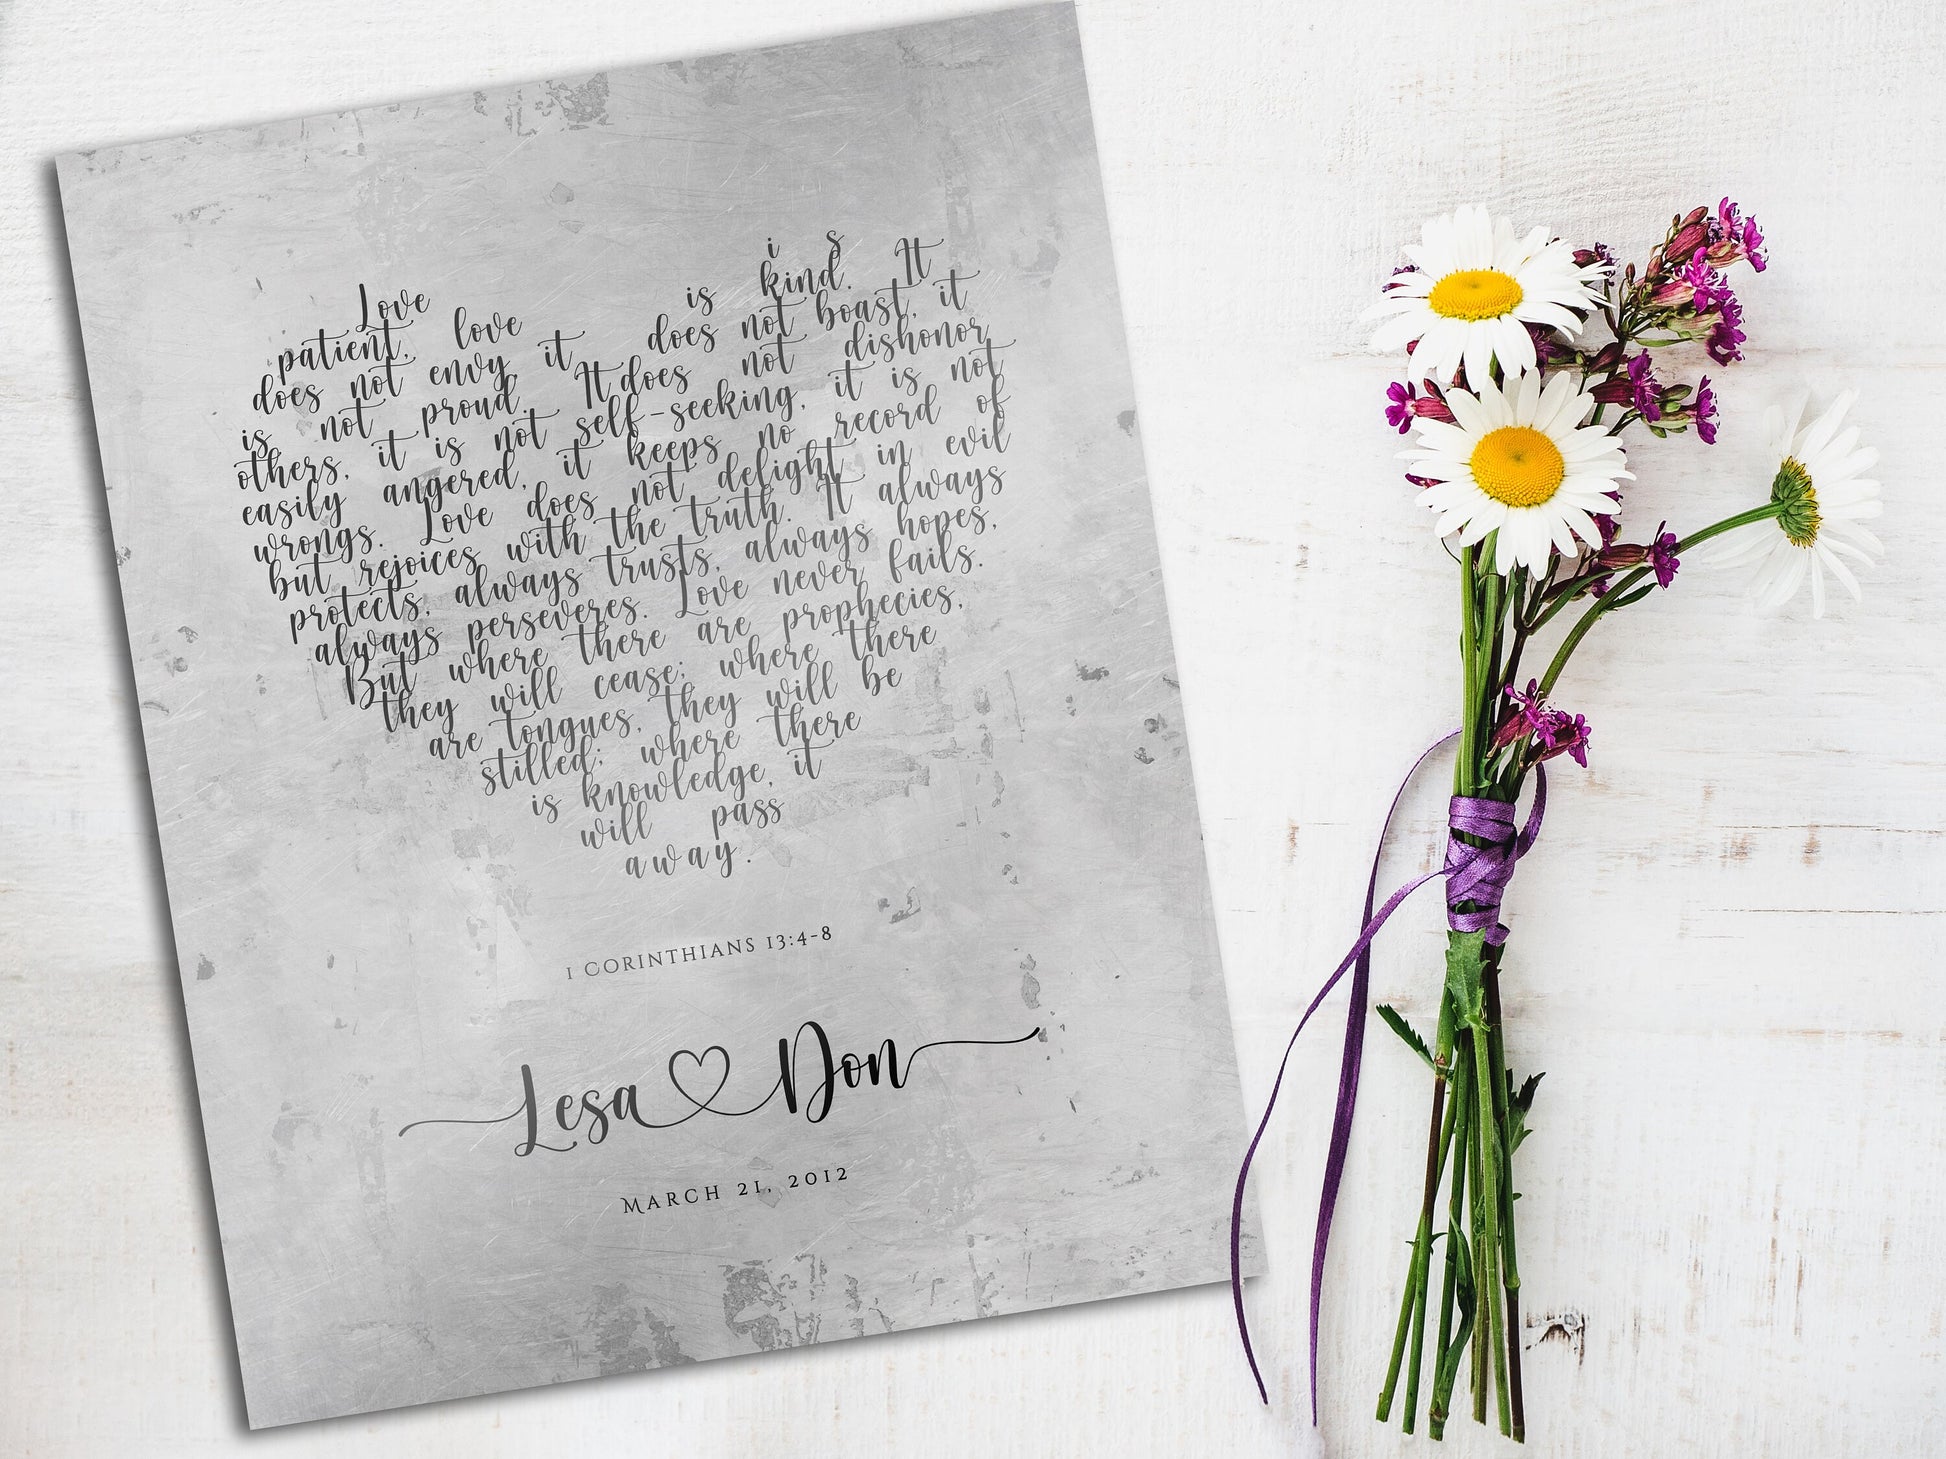 Love is
patient, love is kind. It
does not envy, it does not boast, it
is not proud. It does not dishonor
others, it is not self-seeking, it is not
easily angered, it keeps no record of
wrongs. Love does not delight in evil
but rejoices with the truth. It always
protects, always trusts, always hopes,
always perseveres. Love never fails.
But where there are prophecies,
they will cease; where there
are tongues, they will be
stilled; where there
is knowledge, it
will pass
away.
1 Corinthians 13:4-8
Lesa Don
March 21, 2012